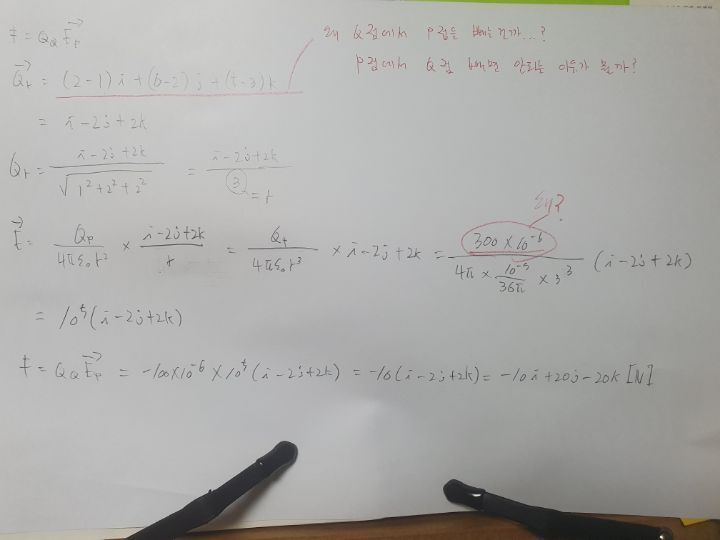 F = Q_Q E_P→
왜 Q점에서 P점을 빼는건가...?
P점에서 Q점 빼면 안되는 이유가 뭘까?
= (2-1)i + (0-2)j + (5-3)k
= i-2j+2k
= i-2j+2k / √(1²+2²+2²) = i-2j+2k / 3 = r
왜?
E→ = Q_P / 4πε₀r² × i-2j+2k / r = / 4πε₀r³ × i-2j+2k = 300×10⁻⁶ / 4π × 10⁻⁹/36π × 3³ (i-2j+2k)
= 10⁵(i-2j+2k)
F = Q_Q E_P→ = -100×10⁻⁶ × 10⁵(i-2j+2k) = -10(i-2j+2k) = -10i+20j-20k [N]